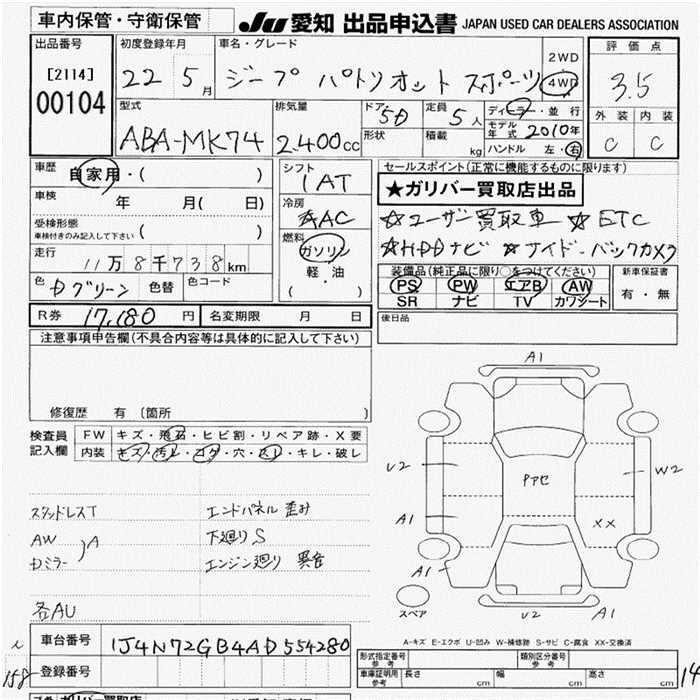 車内保管・守衛保管
JU 愛知 出品申込書 JAPAN USED CAR DEALERS ASSOCIATION
出品番号
[2114]
00104
初度登録年月
22 5月
車名・グレード
ジープ パトリオット スポーツ
2WD
4WD
評価点
3.5
外装 内装
C C
型式
ABA-MK74
排気量
2.400cc
ドア・形状
5D
定員 5人
積載 kg
ディーラー・並行
モデル年式 2010年
ハンドル 左・右
車歴 自家用・( )
車検 年 月( 日)
受検形態
車検付きのみ記入して下さい ( )
走行 11万8千738km
色 Dグリーン 色替 色コード
シフト
1AT
冷房
AAC
燃料
ガソリン
軽・油
( )
セールスポイント(正常に機能するものに限ります)
★ガリバー買取店出品
☆ユーザー買取車 ☆ETC
☆HDDナビ ☆サイド・バックカメラ
装備品(純正品に限り○をつけてください)
PS PW エアB AW
SR ナビ TV カワシート
新車保証書
有・無
後日品
R券 17,180円 名変期限 月 日
注意事項申告欄(不具合内容等は具体的に記入して下さい)
修復歴 有 〔箇所 〕
検査員記入欄
FW キズ・飛石・ヒビ割・リペア跡・X要
内装 キズ・汚レ・コゲ・穴・スレ・キレ・破レ
スタッドレスT
AW
Dミラー
A
各AU
エンドパネル 歪み
下廻り S
エンジン廻り 異音
A1
U2
A1
A1
Pアセ
W2
XX
スペア
U2
A1
A-キズ E-エクボ U-凹み W-補修跡 S-サビ C-腐食 XX-交換済
車台番号 1J4N72GB4AD554280
登録番号
158
形式指定番号 参考
類別区分番号 参考
車庫証明用 参考
長さ cm 幅 cm 高さ cm
14